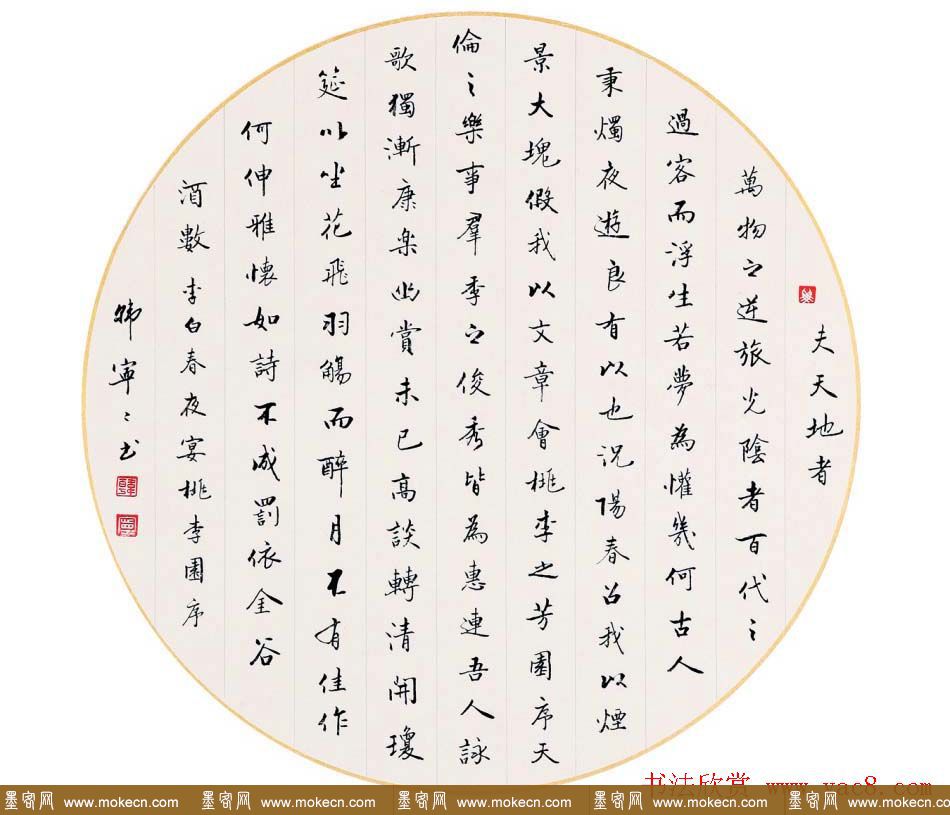 夫天地者
萬物之逆旅光陰者百代之
過客而浮生若夢為懽幾何古人
秉燭夜遊良有以也況陽春召我以煙
景大塊假我以文章會桃李之芳園序天
倫之樂事羣季之俊秀皆為惠連吾人詠
歌獨漸康楽幽賞未已高談轉清開瓊
筵以坐花飛羽觴而醉月不有佳作
何伸雅懷如詩不成罰依金谷
酒數 李白春夜宴桃李園序
韩寧々书
书法欣赏 www.yac8.com
墨客网 www.mokecn.com 墨客网 www.mokecn.com 墨客网 www.mokecn.com 墨客网 www.mokecn.com 墨客网 www.mokecn.com